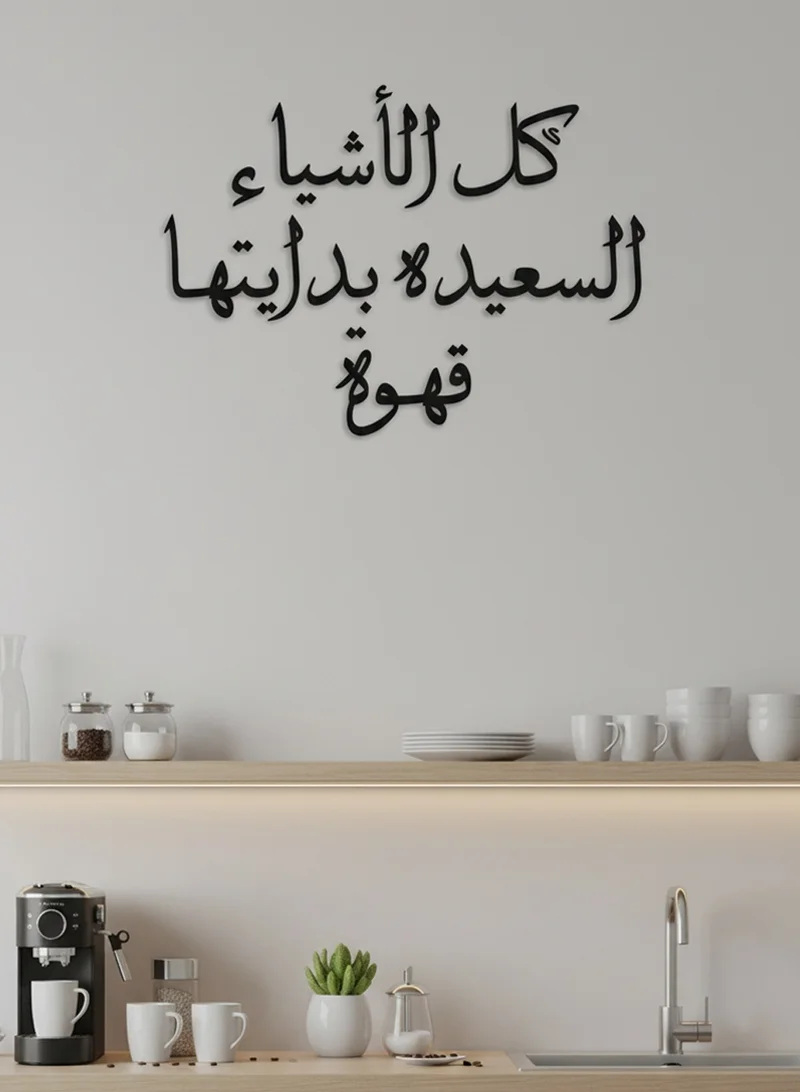 كل الأشياء
السعيده بدايتها
قهوة